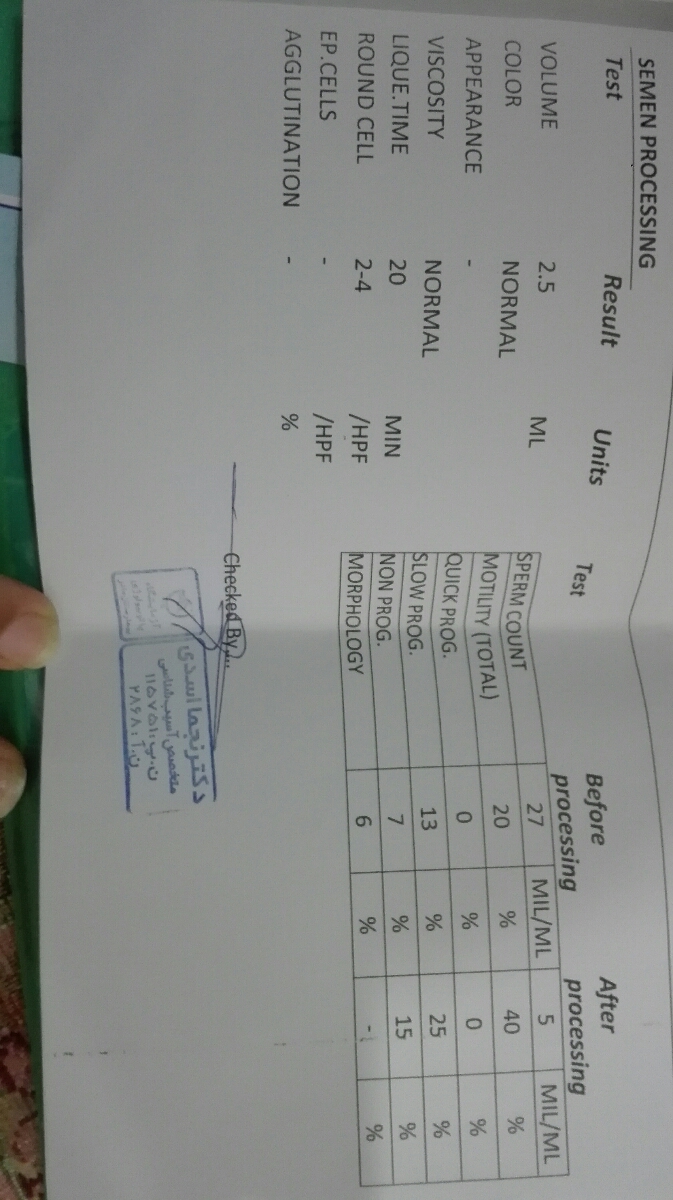 SEMEN PROCESSING
Test Result Units
VOLUME 2.5 ML
COLOR NORMAL
APPEARANCE -
VISCOSITY NORMAL
LIQUE.TIME 20 MIN
ROUND CELL 2-4 /HPF
EP.CELLS - /HPF
AGGLUTINATION - %
Test Before processing After processing
SPERM COUNT 27 MIL/ML 5 MIL/ML
MOTILITY (TOTAL) 20 % 40 %
QUICK PROG. 0 % 0 %
SLOW PROG. 13 % 25 %
NON PROG. 7 % 15 %
MORPHOLOGY 6 % - %
Checked By
دکتر نجما اسدی
متخصص آسیب شناسی
ن.پ: ۱۱۵۷۵۱
ن.آ: ۲۸۶۸